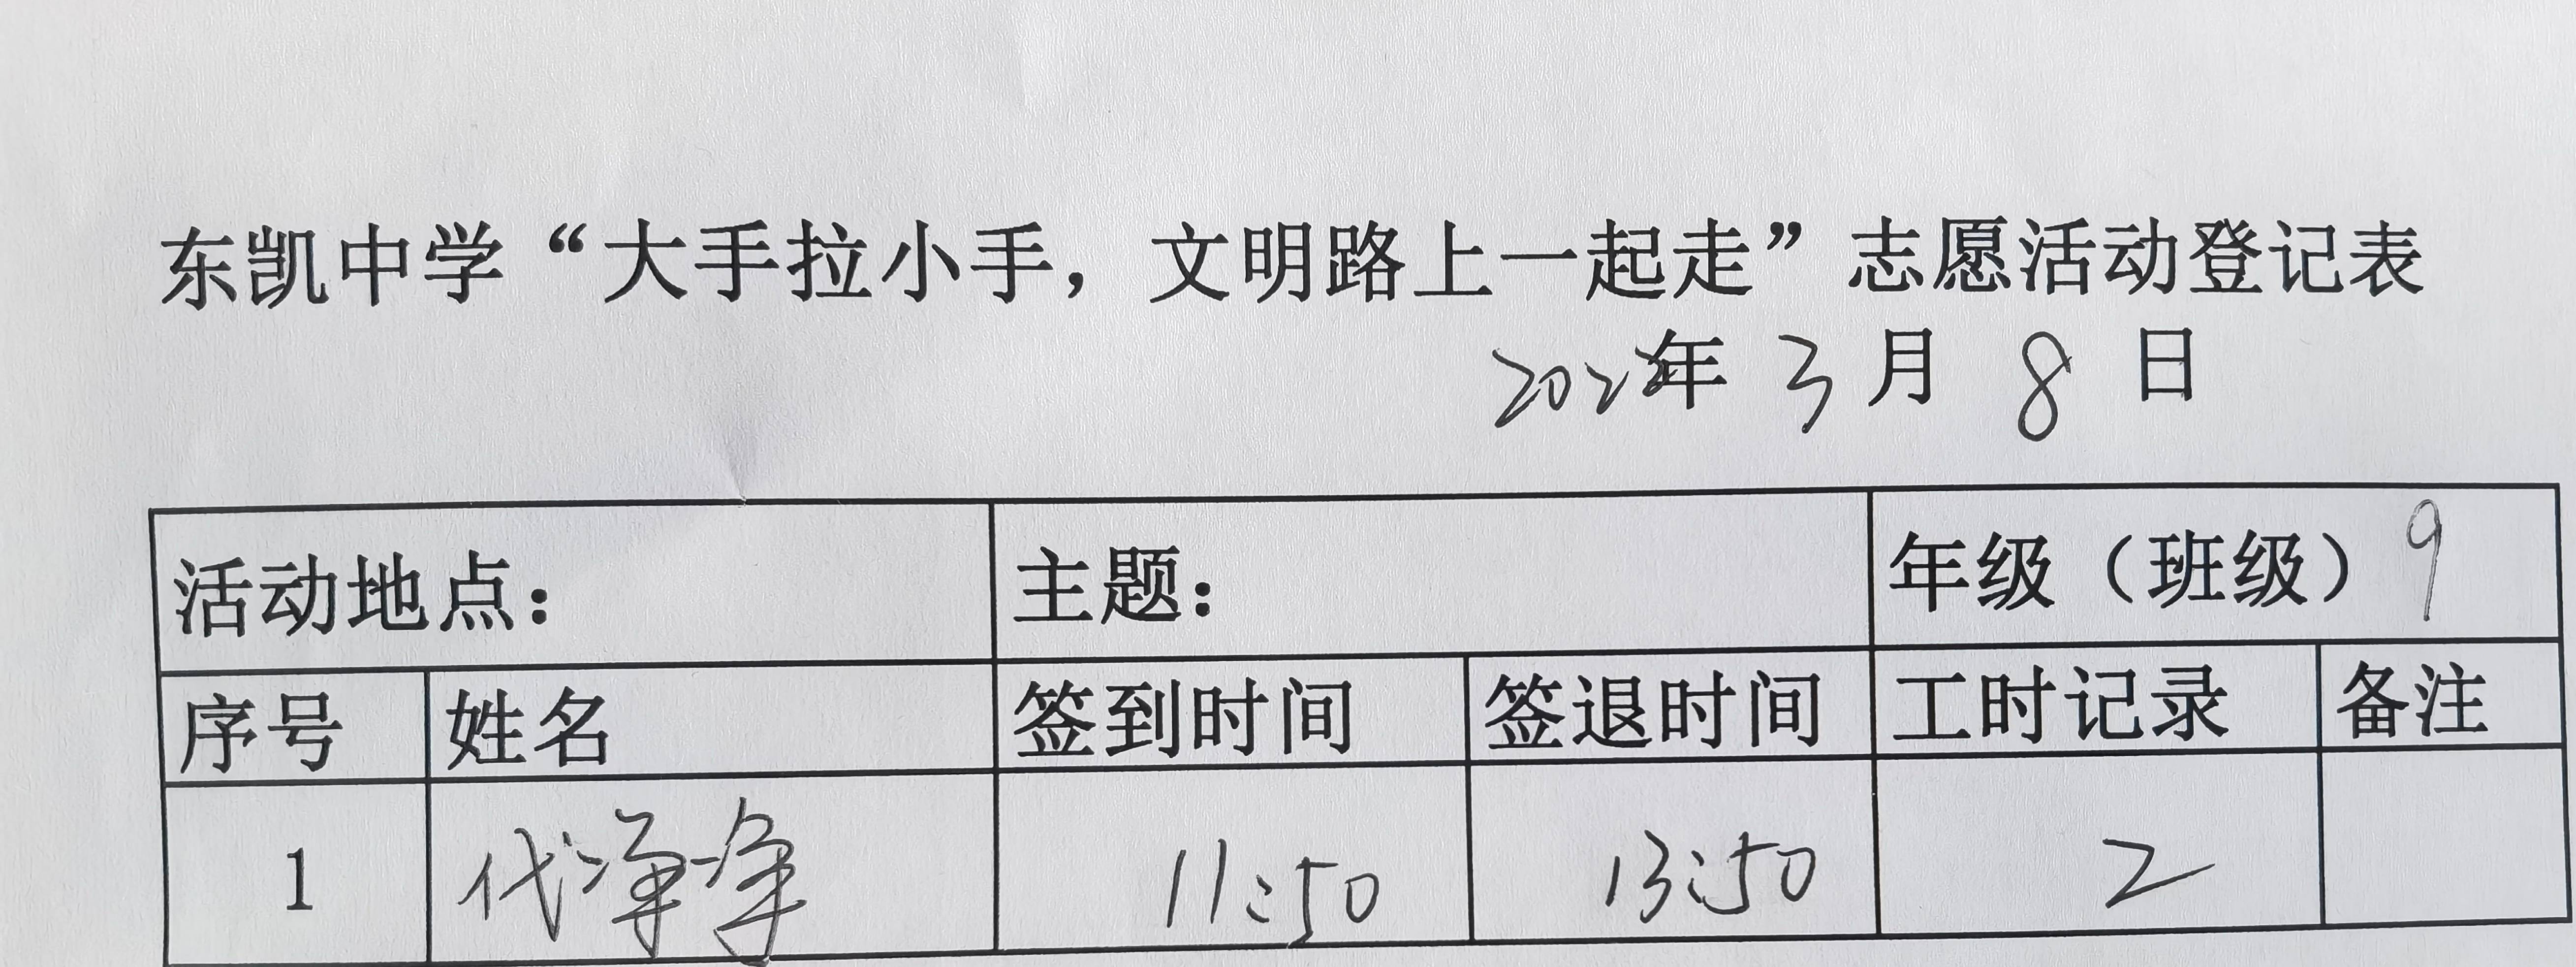 东凯中学“大手拉小手，文明路上一起走”志愿活动登记表
2022年 3 月 8 日
活动地点： 主题： 年级（班级）9
序号 姓名 签到时间 签退时间 工时记录 备注
1 代净净 11:50 13:50 2